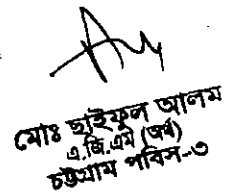 মোঃ ছাইফুল আলম
এ.জি.এম (অর্থ)
চট্টগ্রাম পবিস-৩